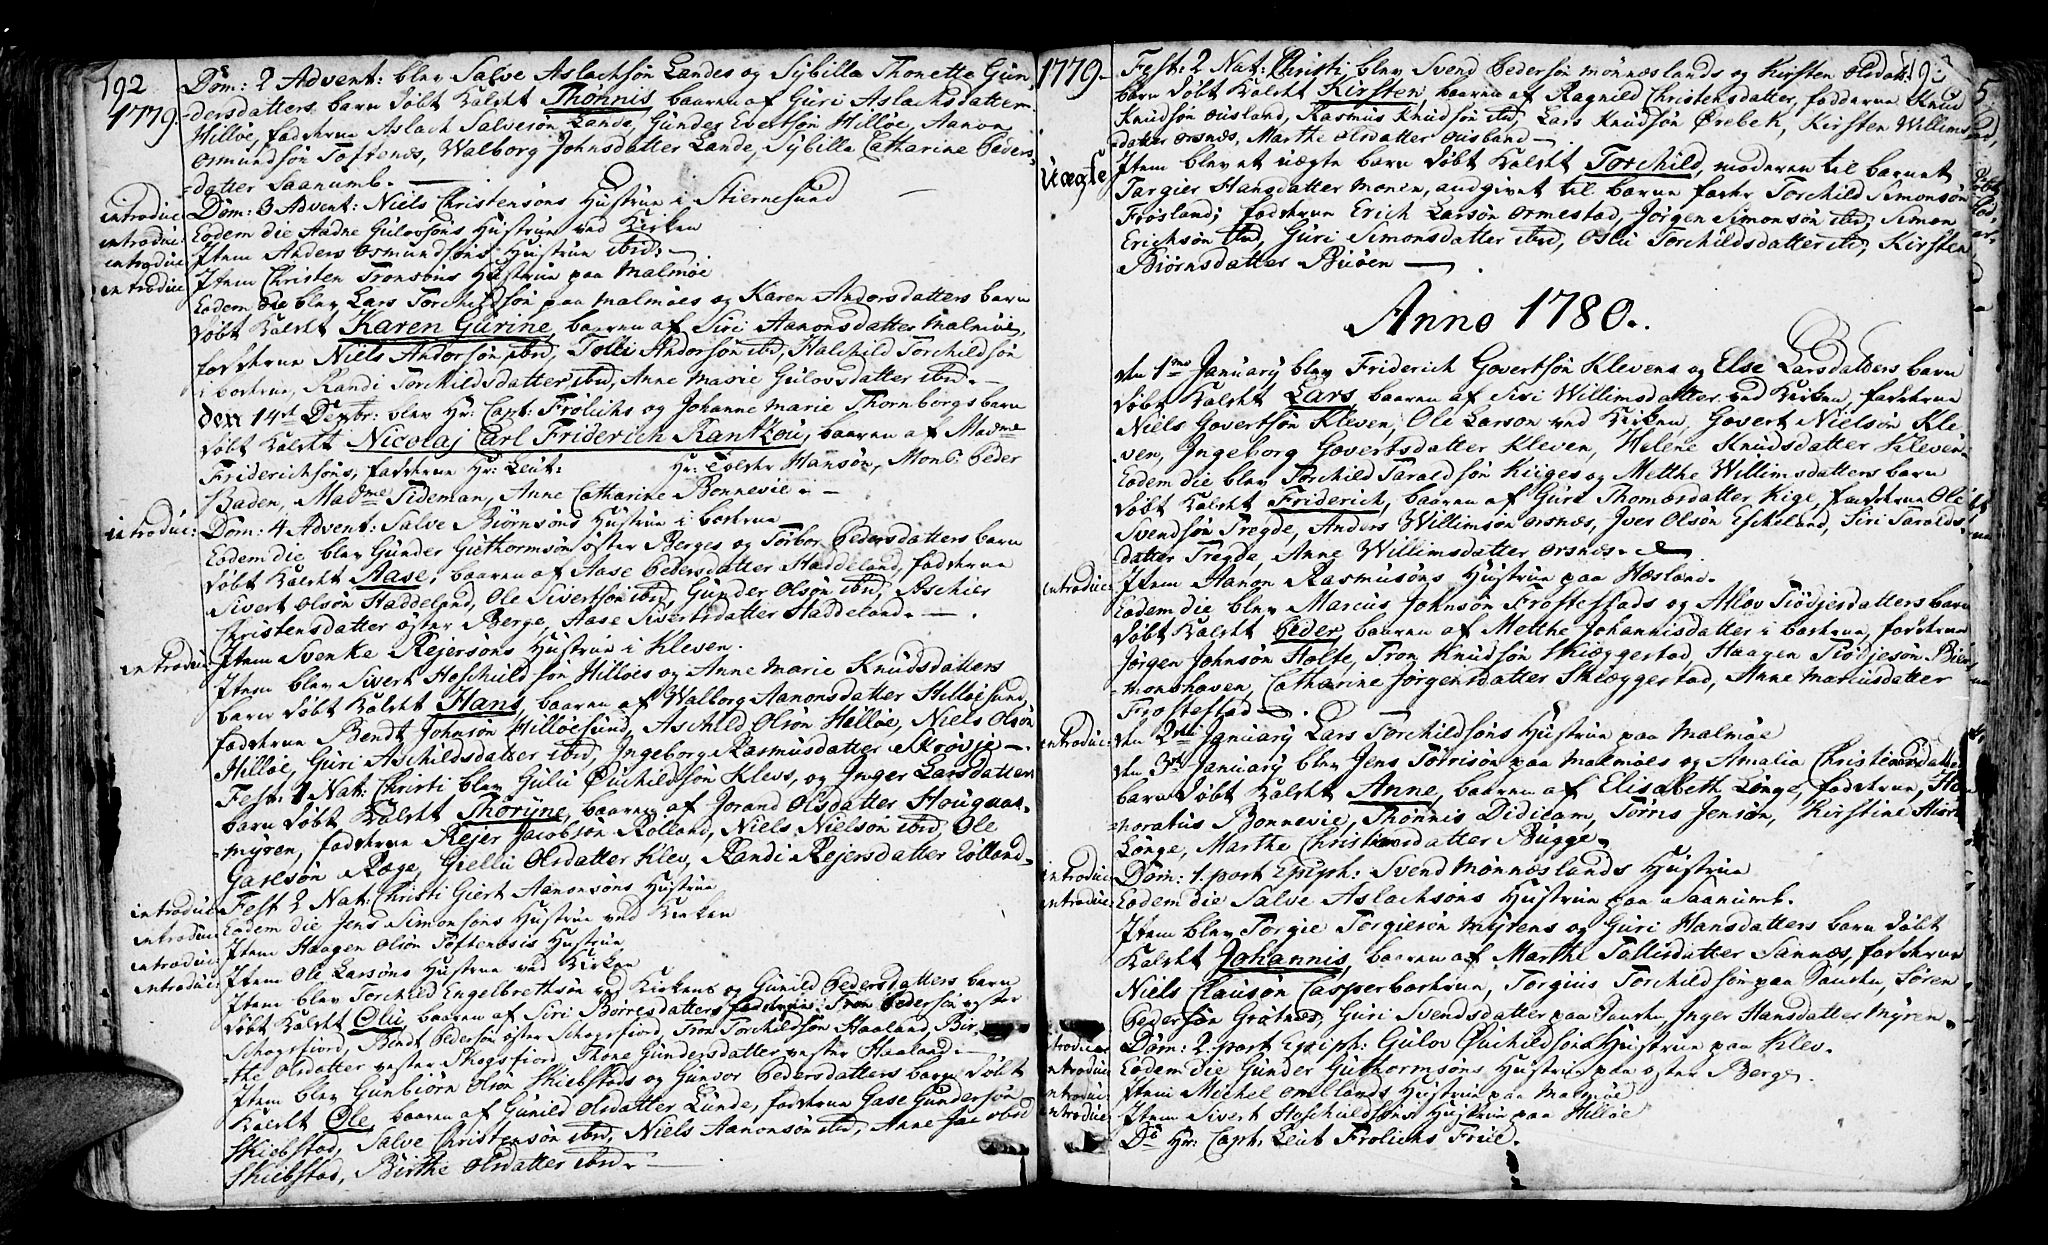 192
1779.
Dom: 2 Advent: blev Salve Aslachsøn Landes og Sybilla Thonette Gun-
dersdatters barn døbt kaldet Thønnis, baaren af Guri Aslachsdatter
Hilløe, fadderne Aslach Salvesøn Lande, Gunder Evertsøn Hilløe, Aanon
Osmundsøn Toftenæs, Walborg Johnsdatter Lande, Sybilla Catharine Peders-
datter Saanumb.
introduc: Dom: 3 Advent: Niels Christensøns Hustrue i Stiernesund
introduc: Eodem die Aadne Gulovsøns Hustrue ved Kirken
introduc: Item Anders Osmundsøns Hustrue ibid;
introduc: Item Christen Tronsøns Hustrue paa Malmøe
Eodem die blev Lars Torchildsøn paa Malmøes og Karen Andorsdatters barn
døbt kaldet Karen Gurine, baaren af Siri Aanonsdatter Malmøe,
fadderne Niels Andorsøn ibid, Tolli Andorsøn ibid, Halchild Torchildsøn
i borterne, Randi Torchildsdatter ibid, Anne Marie Gulovsdatter ibid.
den 14de Decbr: blev Hr: Capt: Frølichs og Johanne Marie Thornborgs barn
døbt kaldet Nicolaj Carl Friderich Rantzou, baaren af Madme
Friderichsøns, fadderne Hr: Leut: Hr: Tolder Hansøn, Mons: Peder
Baden, Madme Tideman, Anne Catharine Bonnevie.
introduc: Dom: 4 Advent: Salve Biørnsøns Hustrue i borterne
Eodem die blev Gunder Guthormsøn øster Berges og Torbor Pedersdatters barn
døbt kaldet Aase, baaren af Aase Pedersdatter Haddeland, fadderne
Sivert Olsøn Haddeland, Ole Sivertsøn ibid, Gunder Olsøn ibid, Aschier
Christensdatter øster Berge, Aase Sivertsdatter Haddeland.
introduc: Item Svenke Rejersøns Hustrue i Kleven.
Item blev Sivert Hoschildsøn Hilløes og Anne Marie Knudsdatters
barn døbt kaldet Hans, baaren af Walborg Aanonsdatter Hilløesund,
fadderne Bendt Johnsøn Hilløesund, Aschild Olsøn Hilløe, Niels Olsøn
Hilløe, Guri Aschildsdatter ibid, Ingeborg Rasmusdatter Skrøvje.
Fest: 1 Nat: Christi blev Gulu Øuchildsøn Klevs, og Inger Larsdatters
barn døbt kaldet Thorine, baaren af Jorand Olsdatter Houguar-
myren, fadderne Rejer Jacobsøn Rolland, Niels Nielsøn ibid, Ole
Garlsøn Røge, Gielli Olsdatter Klev, Randi Rejersdatter Rolland.
introduc: Fest 2 Nat: Christi Giert Aanonsøns Hustrue
introduc: Eodem die Jens Simonsøns Hustrue ved Kirken
introduc: Item Haagen Olsøn Toftenæsis Hustrue
introduc: Item Ole Larsøns Hustrue ved Kirken
Item blev Torchild Engelbrethsøn ved Kirkens og Gunild Pedersdatters barn
døbt kaldet Olu, baaren af Siri Børresdatter, fadderne Tron Pedersøn øster
Schogsfiord, Bendt Pedersøn øster Schogsfiord, Tron Torchildsøn Haaland, Bir-
the Olsdatter vester Skogsfiord, Thone Gundersdatter vester Haaland.
Item blev Gunbiørn Olsøn Skiebstads og Gunvor Pedersdatters barn døbt
kaldet Ole, baaren af Gunild Olsdatter Lunde, fadderne Gase Gundersøn
Skiebstad, Salve Christensøn ibid, Niels Aanonsøn ibid, Anne Jacobsd
Skiebstad, Birthe Olsdatter ibid.
1779.
193
Fest: 2 Nat: Christi blev Svend Pedersøn Mønnæslands og Kirsten Olsdatt:
barn døbt kaldet Kirsten, baaren af Ragnild Christensdatter, fadderne Knud
Knudsøn Ousland, Rasmus Knudsøn ibid, Lars Knudsøn Ørebek, Kirsten Willims-
datter Orsnæs, Marthe Olsdatter Ousland.
Uægte Item blev et uægte barn døbt kaldet Torchild, moderen til barnet
Targier Hansdatter Monen, audgivet til barne fader Torchild Simonsøn
Frøsland; fadderne Erich Larsøn Ormestad, Jørgen Simonsøn ibid, Simon
Erichsøn ibid, Guri Simonsdatter ibid, Oslu Torchildsdatter ibid, Kirsten
Biørnsdatter Buøen
Anno 1780.
den 1me January blev Friderich Govertsøn Klevens og Else Larsdatters barn
døbt kaldet Lars, baaren af Siri Willimsdatter ved Kirken, fadderne
Niels Govertsøn Kleven, Ole Larson ved Kirken, Govert Nielsøn Kle
ven, Ingeborg Govertsdatter Kleven, Helene Knudsdatter Kleven.
Eodem die blev Torchild Taraldsøn Kiiges og Metthe Willimsdatters barn
døbt kaldet Friderich, baaren af Guro Thomæsdatter Kige, fadderne Ole
Svendsøn Tregde, Anders Willimsøn Orsnæs, Iver Olsøn Eskeland, Siri Taralds-
datter Tregde, Anne Willimsdatter Orsnæs.
introduc: Item Aanon Rasmusøns Hustrue paa Hæsland.
Eodem die blev Marcus Johnsøn Frøstestads og Atlov Siødjesdatters barn
døbt kaldet Peder, baaren af Metthe Johannisdatter i borterne, fadderne
Jørgen Johnsøn Holte, Tron Knudsøn Skiæggestad, Haagen Siødjesøn Bien
monshaven, Catharine Jørgensdatter Skiæggestad, Anne Marcusdatter
Frøstestad.
introduc: den 2den January Lars Torchildsøns Hustrue paa Malmøe
den 3die January blev Jens Tørrisøn paa Malmøes og Amalia Christiansdatters
barn døbt kaldet Anne, baaren af Elisabeth Lønge, fadderne, Ho
noratus Bonnevie, Thønnis Didicam, Tørris Jensøn, Kirstine
Lønge, Marthe Christiansdatter Bugge.
introduc: Dom: 1. post Epiph: Svend Mønnæslands Hustrue
introduc: Eodem die Salve Aslachsøns Hustrue paa Saanumb.
Item blev Torgie Torgiesøn Myrens og Guri Hansdatters barn døbt
kaldet Johannis, baaren af Marthe Tallisdatter Sannæs, fadderne
Niels Clausøn Casperborterne, Torgius Torchildsøn paa Sanden, Søren
Pedersøn Grotnæs, Guri Svendsdatter paa Sanden, Inger Hansdatter Myren.
introduc: Dom: 2. post Epiph: Gulov Øuchildsøns Hustrue paa Klev.
introduc: Eodem die Gunder Guthormsøns Hustrue paa øster Berge.
introduc: Item Michel Omlands Hustrue paa Malmøe
introduc: Item Sivert Hoschildsøns Hustrue paa Hilløe
Do Hr: Capt: Leut Frølichs Frue.